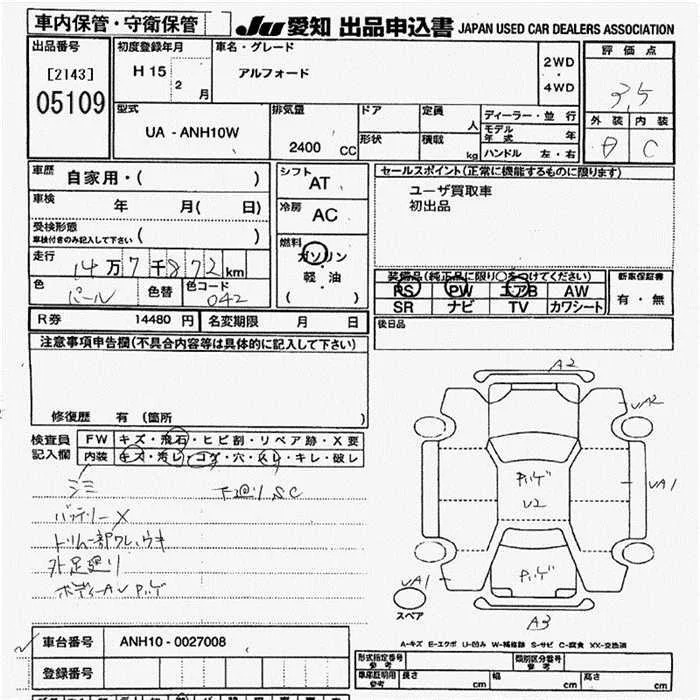 車内保管・守衛保管 JU 愛知 出品申込書 JAPAN USED CAR DEALERS ASSOCIATION
出品番号 初度登録年月 車名・グレード 評価点
[2143] H15 2 月 アルフォード 2WD・4WD 3.5
05109
型式 排気量 ドア 定員 人 ディーラー・並行 外装 内装
UA - ANH10W 2400 CC 形状 積載 kg モデル年式 年 C
ハンドル 左・右
車歴 自家用・( ) シフト AT セールスポイント(正常に機能するものに限ります)
車検 年 月( 日) 冷房 AC ユーザ買取車
初出品
受検形態 ( )
車検付きのみ記入して下さい
燃料 ガソリン・軽・油 ( )
走行 14万7千872km
色 パール 色替 色コード 042
装備品(純正品に限り○をつけてください) 新車保証書
PS PW エアB AW 有・無
SR ナビ TV カワシート
R券 14480円 名変期限 月 日 後日品
注意事項申告欄(不具合内容等は具体的に記入して下さい)
修復歴 有 (箇所 )
検査員記入欄 FW キズ・飛石・ヒビ割・リペア跡・X要
内装 キズ・汚レ・コゲ・穴・スレ・キレ・破レ
シミ 下廻りSC
バッテリーX
トリム一部ワレ、ウキ
外足廻り
A2
UA2
UA1
U2
UA1
A3
スペア
A-キズ E-エクボ U-凹み W-補修跡 S-サビ C-腐食 XX-交換済
車台番号 ANH10 - 0027008
登録番号
形式指定番号 参考 類別区分番号 参考
車庫証明用 参考 長さ cm 幅 cm 高さ cm